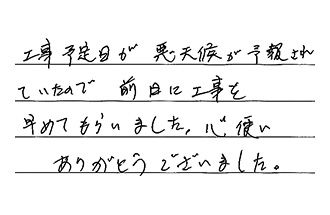 工事予定日が 悪天候が予報され
ていたので 前日に工事を
早めてもらいました。心使い
ありがとうございました。